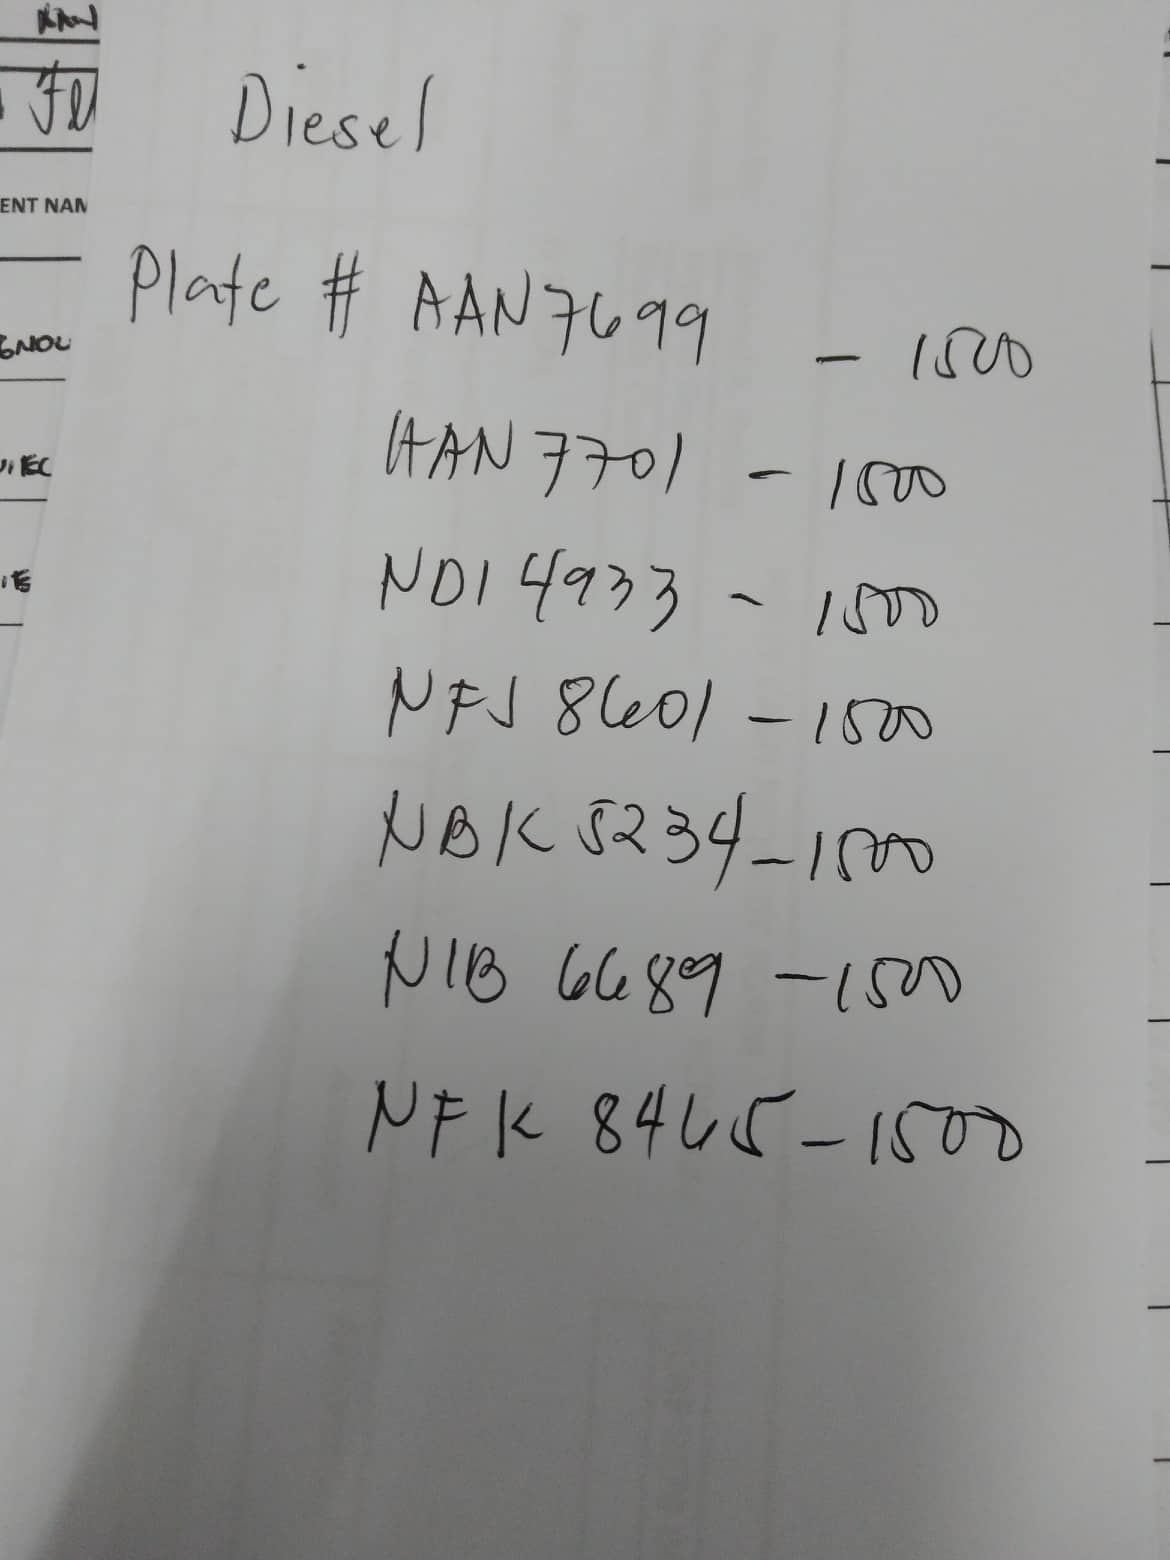 Diesel
ENT NAM
Plate # AAN7699 - 1500
AAN 7701 - 1500
NDI 4933 - 1500
NFJ 8601 - 1500
NBK 5234 - 1500
NIB 6689 - 1500
NFK 8465 - 1500